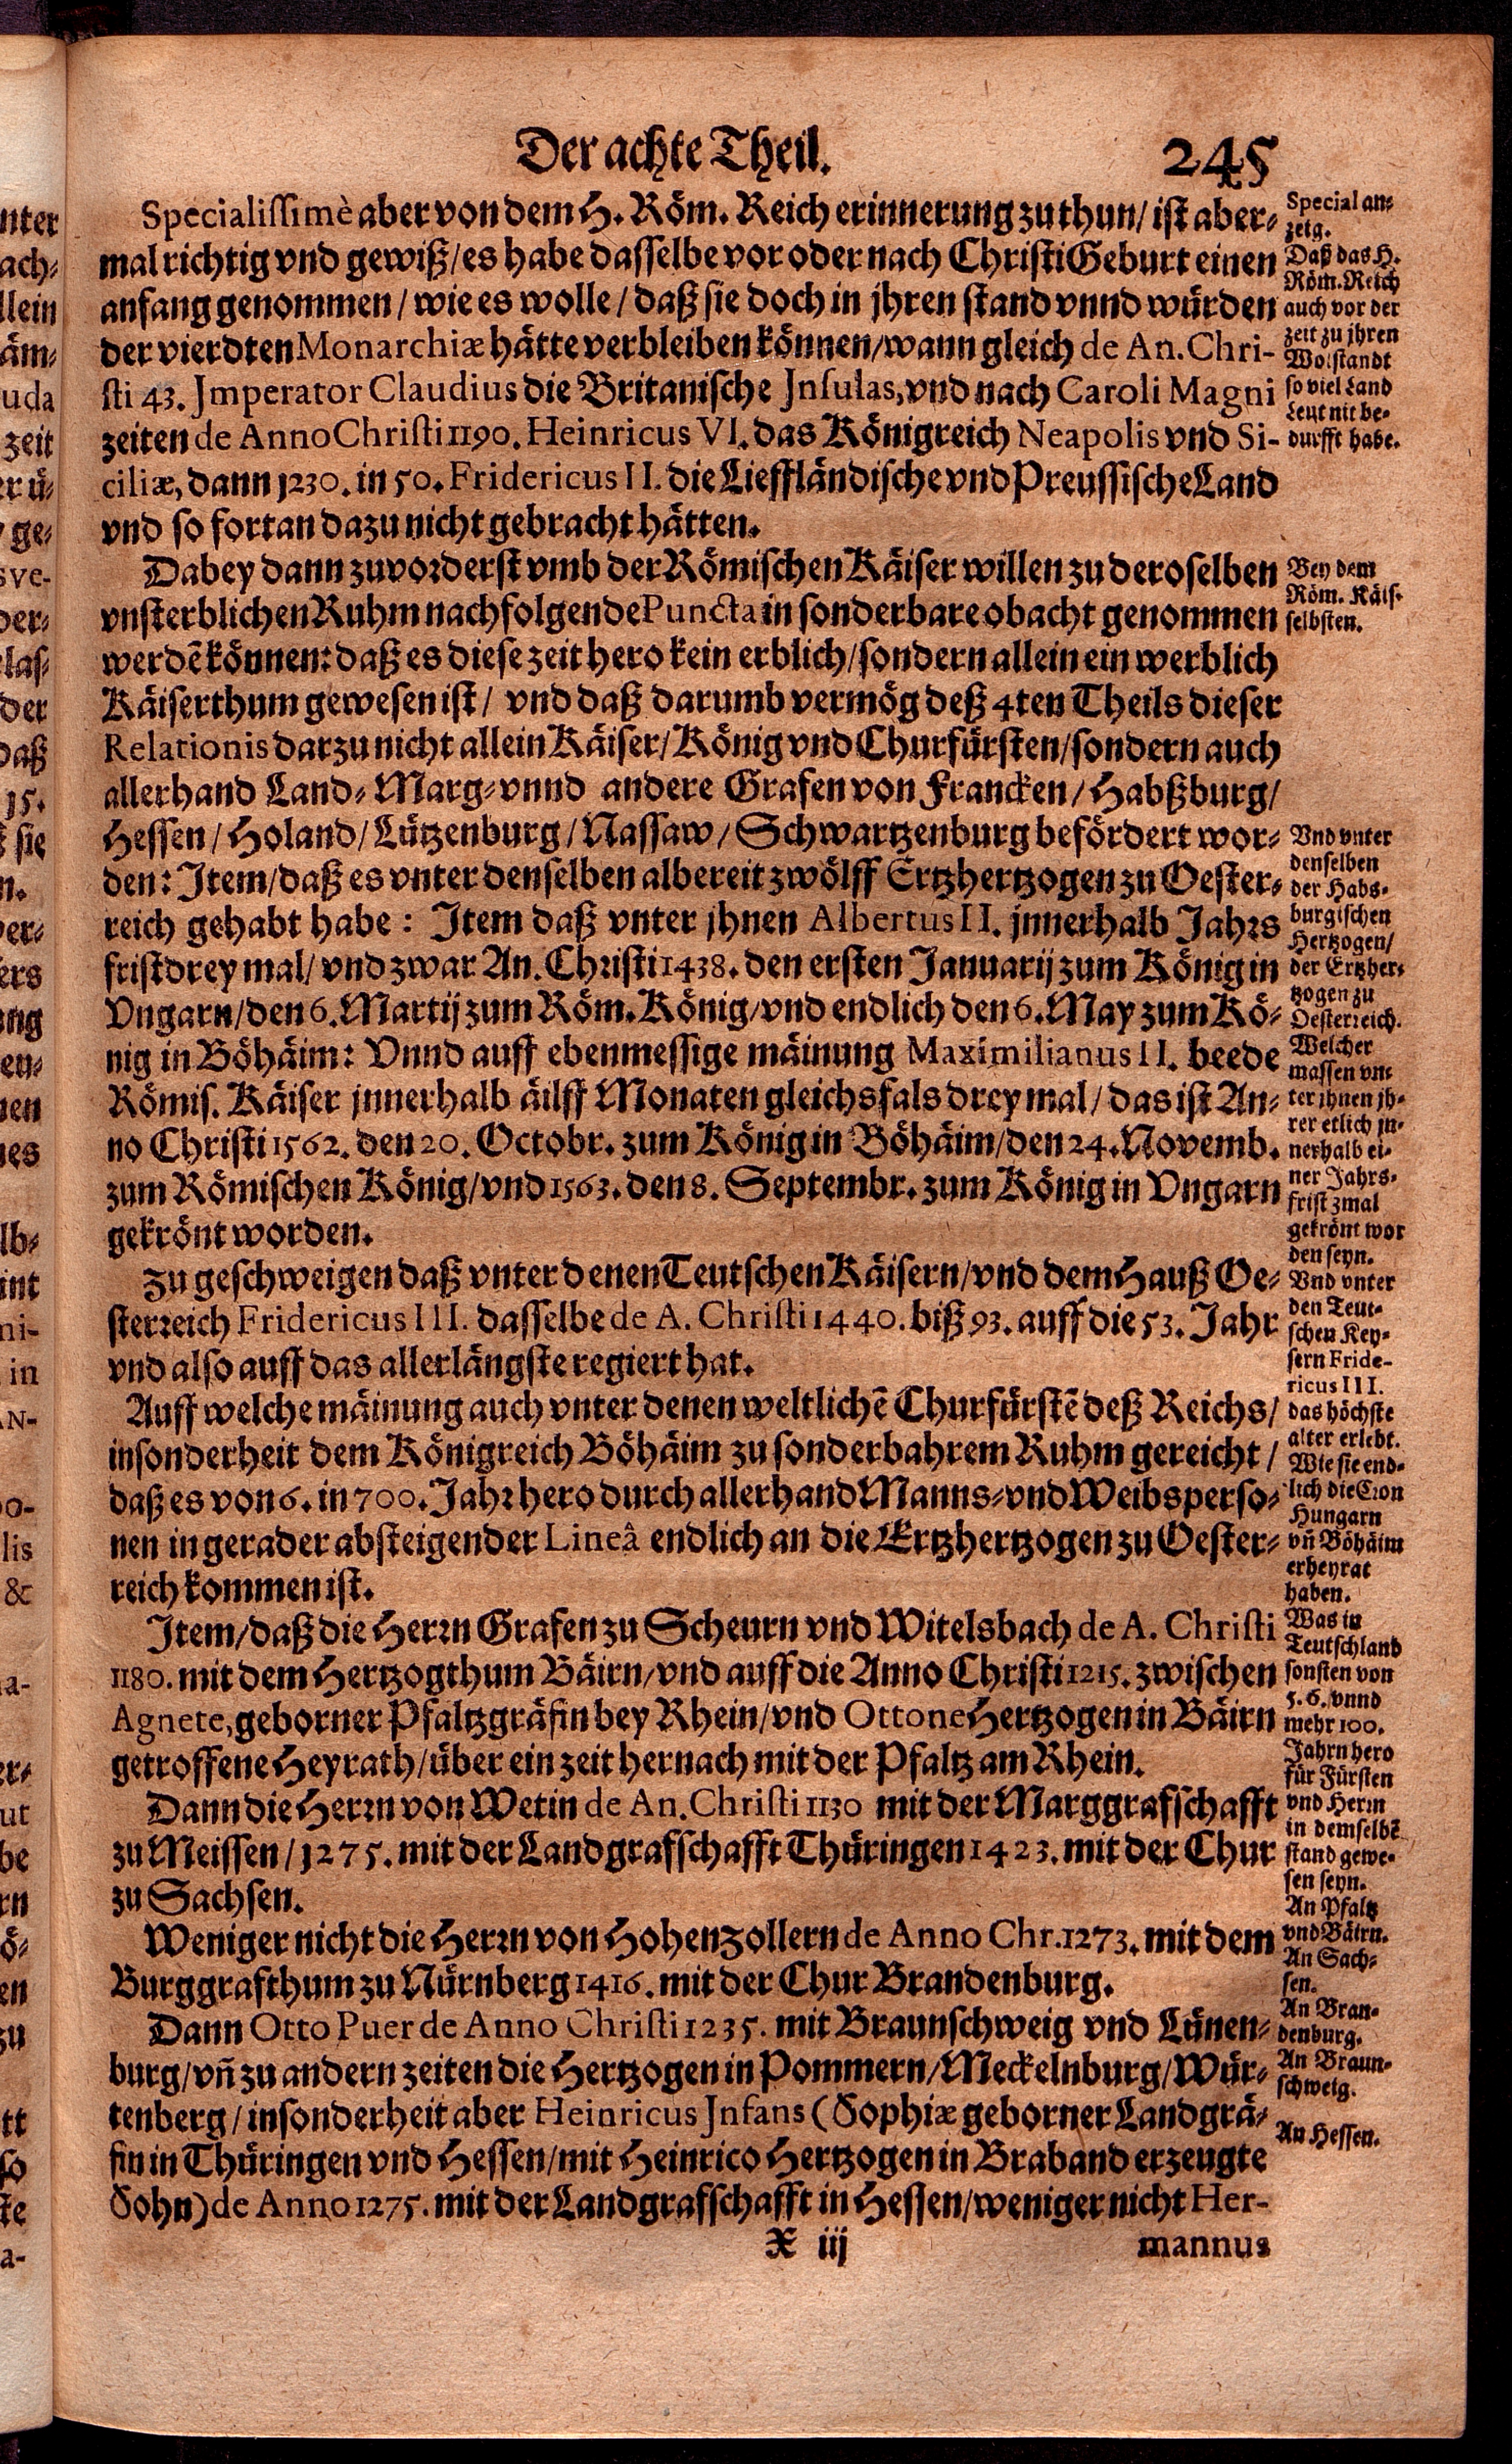 Der achte Theil. 245
Specialissimè aber von dem H. Röm. Reich erinnerung zu thun/ ist aber-
mal richtig vnd gewiß/ es habe dasselbe vor oder nach Christi Geburt einen
anfang genommen/ wie es wolle/ daß sie doch in jhren stand vnnd würden
der vierdten Monarchiæ hätte verbleiben können/ wann gleich de An. Chri-
sti 43. Jmperator Claudius die Britanische Jnsulas, vnd nach Caroli Magni
zeiten de Anno Christi 1190. Heinricus VI. das Königreich Neapolis vnd Si-
ciliæ, dann 1230. in 50. Fridericus II. die Lieffländische vnd Preussische Land
vnd so fortan dazu nicht gebracht hätten.
Dabey dann zuvorderst vmb der Römischen Käiser willen zu deroselben
vnsterblichen Ruhm nachfolgende Puncta in sonderbare obacht genommen
werdē können: daß es diese zeit hero kein erblich/ sondern allein ein werblich
Käiserthum gewesen ist/ vnd daß darumb vermög deß 4ten Theils dieser
Relationis darzu nicht allein Käiser/ König vnd Churfürsten/ sondern auch
allerhand Land- Marg- vnnd andere Grafen von Francken/ Habßburg/
Hessen/ Holand/ Lützenburg/ Nassaw/ Schwartzenburg befördert wor-
den: Jtem/ daß es vnter denselben albereit zwölff Ertzhertzogen zu Oester-
reich gehabt habe: Jtem daß vnter jhnen Albertus II. jnnerhalb Jahrs
frist drey mal/ vnd zwar An. Christi 1438. den ersten Januarij zum König in
Vngarn/ den 6. Martij zum Röm. König/ vnd endlich den 6. May zum Kö-
nig in Böhäim: Vnnd auff ebenmessige mäinung Maximilianus II. beede
Römis. Käiser jnnerhalb äilff Monaten gleichsfals drey mal/ das ist An-
no Christi 1562. den 20. Octobr. zum König in Böhäim/ den 24. Novemb.
zum Römischen König/ vnd 1563. den 8. Septembr. zum König in Vngarn
gekrönt worden.
Zu geschweigen daß vnter denen Teutschen Käisern/ vnd dem Hauß Oe-
sterreich Fridericus III. dasselbe de A. Christi 1440. biß 93. auff die 53. Jahr
vnd also auff das allerlängste regiert hat.
Auff welche mäinung auch vnter denen weltlichē Churfürstē deß Reichs/
insonderheit dem Königreich Böhäim zu sonderbahrem Ruhm gereicht/
daß es von 6. in 700. Jahr hero durch allerhand Manns- vnd Weibsperso-
nen in gerader absteigender Lineâ endlich an die Ertzhertzogen zu Oester-
reich kommen ist.
Jtem/ daß die Herrn Grafen zu Scheurn vnd Witelsbach de A. Christi
1180. mit dem Hertzogthum Bäirn/ vnd auff die Anno Christi 1215. zwischen
Agnete, geborner Pfaltzgräfin bey Rhein/ vnd Ottone Hertzogen in Bäirn
getroffene Heyrath/ über ein zeit hernach mit der Pfaltz am Rhein.
Dann die Herrn von Wetin de An. Christi 1130 mit der Marggrafschafft
zu Meissen/ 1275. mit der Landgrafschafft Thüringen 1423. mit der Chur
zu Sachsen.
Weniger nicht die Herrn von Hohenzollern de Anno Chr. 1273. mit dem
Burggrafthum zu Nürnberg 1416. mit der Chur Brandenburg.
Dann Otto Puer de Anno Christi 1235. mit Braunschweig vnd Lünen-
burg/ vn̄ zu andern zeiten die Hertzogen in Pommern/ Meckelnburg/ Wür-
tenberg/ insonderheit aber Heinricus Jnfans (Sophiæ geborner Landgrä-
fin in Thüringen vnd Hessen/ mit Heinrico Hertzogen in Braband erzeugte
Sohn) de Anno 1275. mit der Landgrafschafft in Hessen/ weniger nicht Her-
X iij mannus
Special an-
zeig.
Daß das H.
Röm. Reich
auch vor der
zeit zu jhren
Wolstandt
so viel Land
Leut nit be-
durfft habe.
Bey dem
Röm. Käis.
selbsten.
Vnd vnter
denselben
der Habs-
burgischen
Hertzogen/
der Ertzher-
tzogen zu
Oesterreich.
Welcher
massen vn-
ter jhnen jh-
rer etlich jn-
nerhalb ei-
ner Jahrs-
frist 3mal
gekrönt wor
den seyn.
Vnd vnter
den Teut-
schen Key-
sern Fride-
ricus III.
das höchste
alter erlebt.
Wie sie end-
lich die Cron
Hungarn
vn̄ Böhäim
erheyrat
haben.
Was in
Teutschland
sonsten von
5. 6. vnnd
mehr 100.
Jahrn hero
für Fürsten
vnd Herrn
in demselbē
stand gewe-
sen seyn.
An Pfaltz
vnd Bäirn.
An Sach-
sen.
An Bran-
denburg.
An Braun-
schweig.
An Hessen.
nter
ach-
llein
äm-
uda
zeit
er ü-
ge-
sve-
der-
las-
der
daß
15.
sie
n.
ver-
ers
ung
en-
nen
nes
lb-
int
ni-
in
AN-
oo-
lis
&
a-
er-
ut
be
rn
ö-
en
zu
tt
so
te
a-